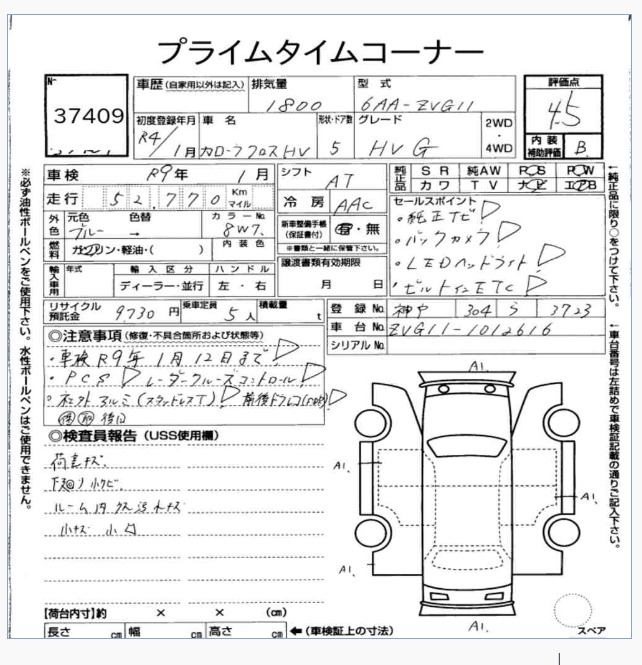 プライムタイムコーナー
No.
37409
車歴(自家用以外は記入) 排気量 型式
1800 6AA-ZVG11
評価点
4.5
初度登録年月 車名 形状・ドア数 グレード
R4/1月 カローラクロスHV 5 HV G
2WD・4WD
内装補助評価 B
車検 R9年 1月
シフト AT
純正品 SR 純AW PS PW
カワ TV ナビ エアB
走行 52,770 Km マイル
冷房 AAC
セールスポイント
・純正TV
・バックカメラ
・LEDヘッドライト
・ビルトインETC
外色 元色 色替 カラーNo.
ブルー → 8W7
新車整備手帳(保証書付) 有・無
※書類と一緒に保管下さい。
燃料 ガソリン・軽油・( ) 内装色
譲渡書類有効期限
月 日
輸入車用 年式 輸入区分 ハンドル
ディーラー・並行 左・右
リサイクル預託金 9730円 乗車定員 5人 積載量 t
登録No. 304 3723
車台No. ZVG11-1012616
シリアルNo.
◎注意事項(修復・不具合箇所および状態等)
・車検R9年1月12日まで
・PCS レーダークルーズコントロール
・社外アルミ(スタッドレスT) 前後ドラレコ
後日
◎検査員報告(USS使用欄)
荷室キズ
下廻り小サビ
ルーム内
小キズ 小凹
A1.
A1.
A1.
A1.
A1.
【荷台内寸】約 × × (cm)
長さ cm 幅 cm 高さ cm ←(車検証上の寸法)
スペア
※必ず油性ボールペンをご使用下さい。水性ボールペンはご使用できません。
←純正品に限り○をつけて下さい。
←車台番号は左詰めで車検証記載の通りご記入下さい。